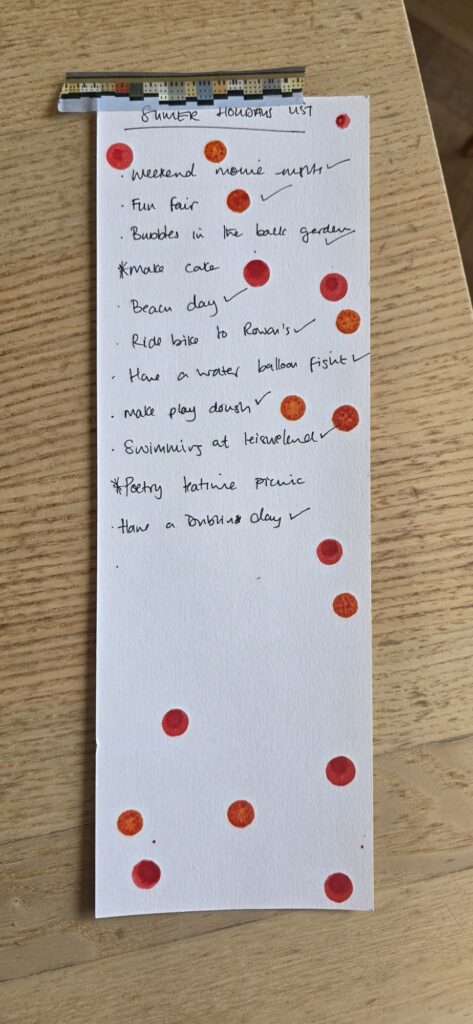 SUMMER HOLIDAYS LIST
· Weekend movie nights ✓
· Fun Fair ✓
· Bubbles in the back garden ✓
* make cake
· Beach day ✓
· Ride bike to Rowan's ✓
· Have a water balloon fight ✓
· make play dough ✓
· Swimming at leisureland ✓
* Poetry teatime picnic
· Have a day ✓
·